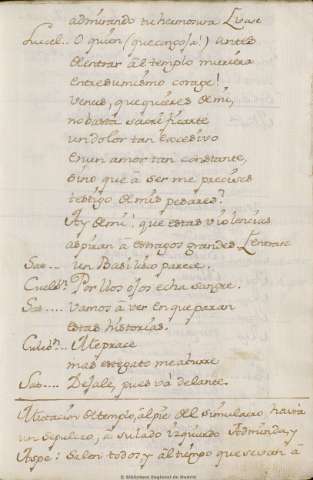 admirando tu hermosura Vase
Lucel.. O quien (que congoja!) antes
de entrar ā el templo muriera
entre su mismo corage!
Venus, que quieres de mi,
no basta sacrificarte
un dolor tan excesivo
en un amor tan constante,
sino que ā ser me precises
testigo de mis pesares?
Ay de mi! que estas violencias
aspiran ā estragos grandes. Entrase
Sat.... un Basilisco parece.
Culebn. Por los ojos echa sangre.
Sat..... Vamos ā ver en que paran
estas historias.
Culebn... Me place
mas este gato me aburre
Sat.... Dejale, pues vā delante.
Mutacion de templo, al pie del simulacro havra
un sepulcro, a su lado izquierdo Admunda, y
Aspe: Salen todos y āl tiempo que se van ā
© Biblioteca Regional de Madrid